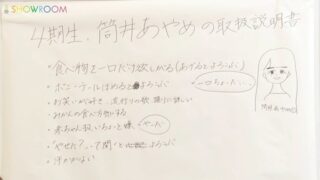 SHOWROOM
4期生、筒井あやめの取扱説明書
・食べ物を一口だけ欲しがる(あげるとよろこぶ)
一口ちょーだい
・ポニーテールほめるとよろこぶ
・お笑いが好き、流行りの歌
・みかんの食べ方
・赤ちゃん扱いちょっと嫌
やーだー
・"やせた?"って聞くとよろこぶ
・汗かかない
筒井あやめ